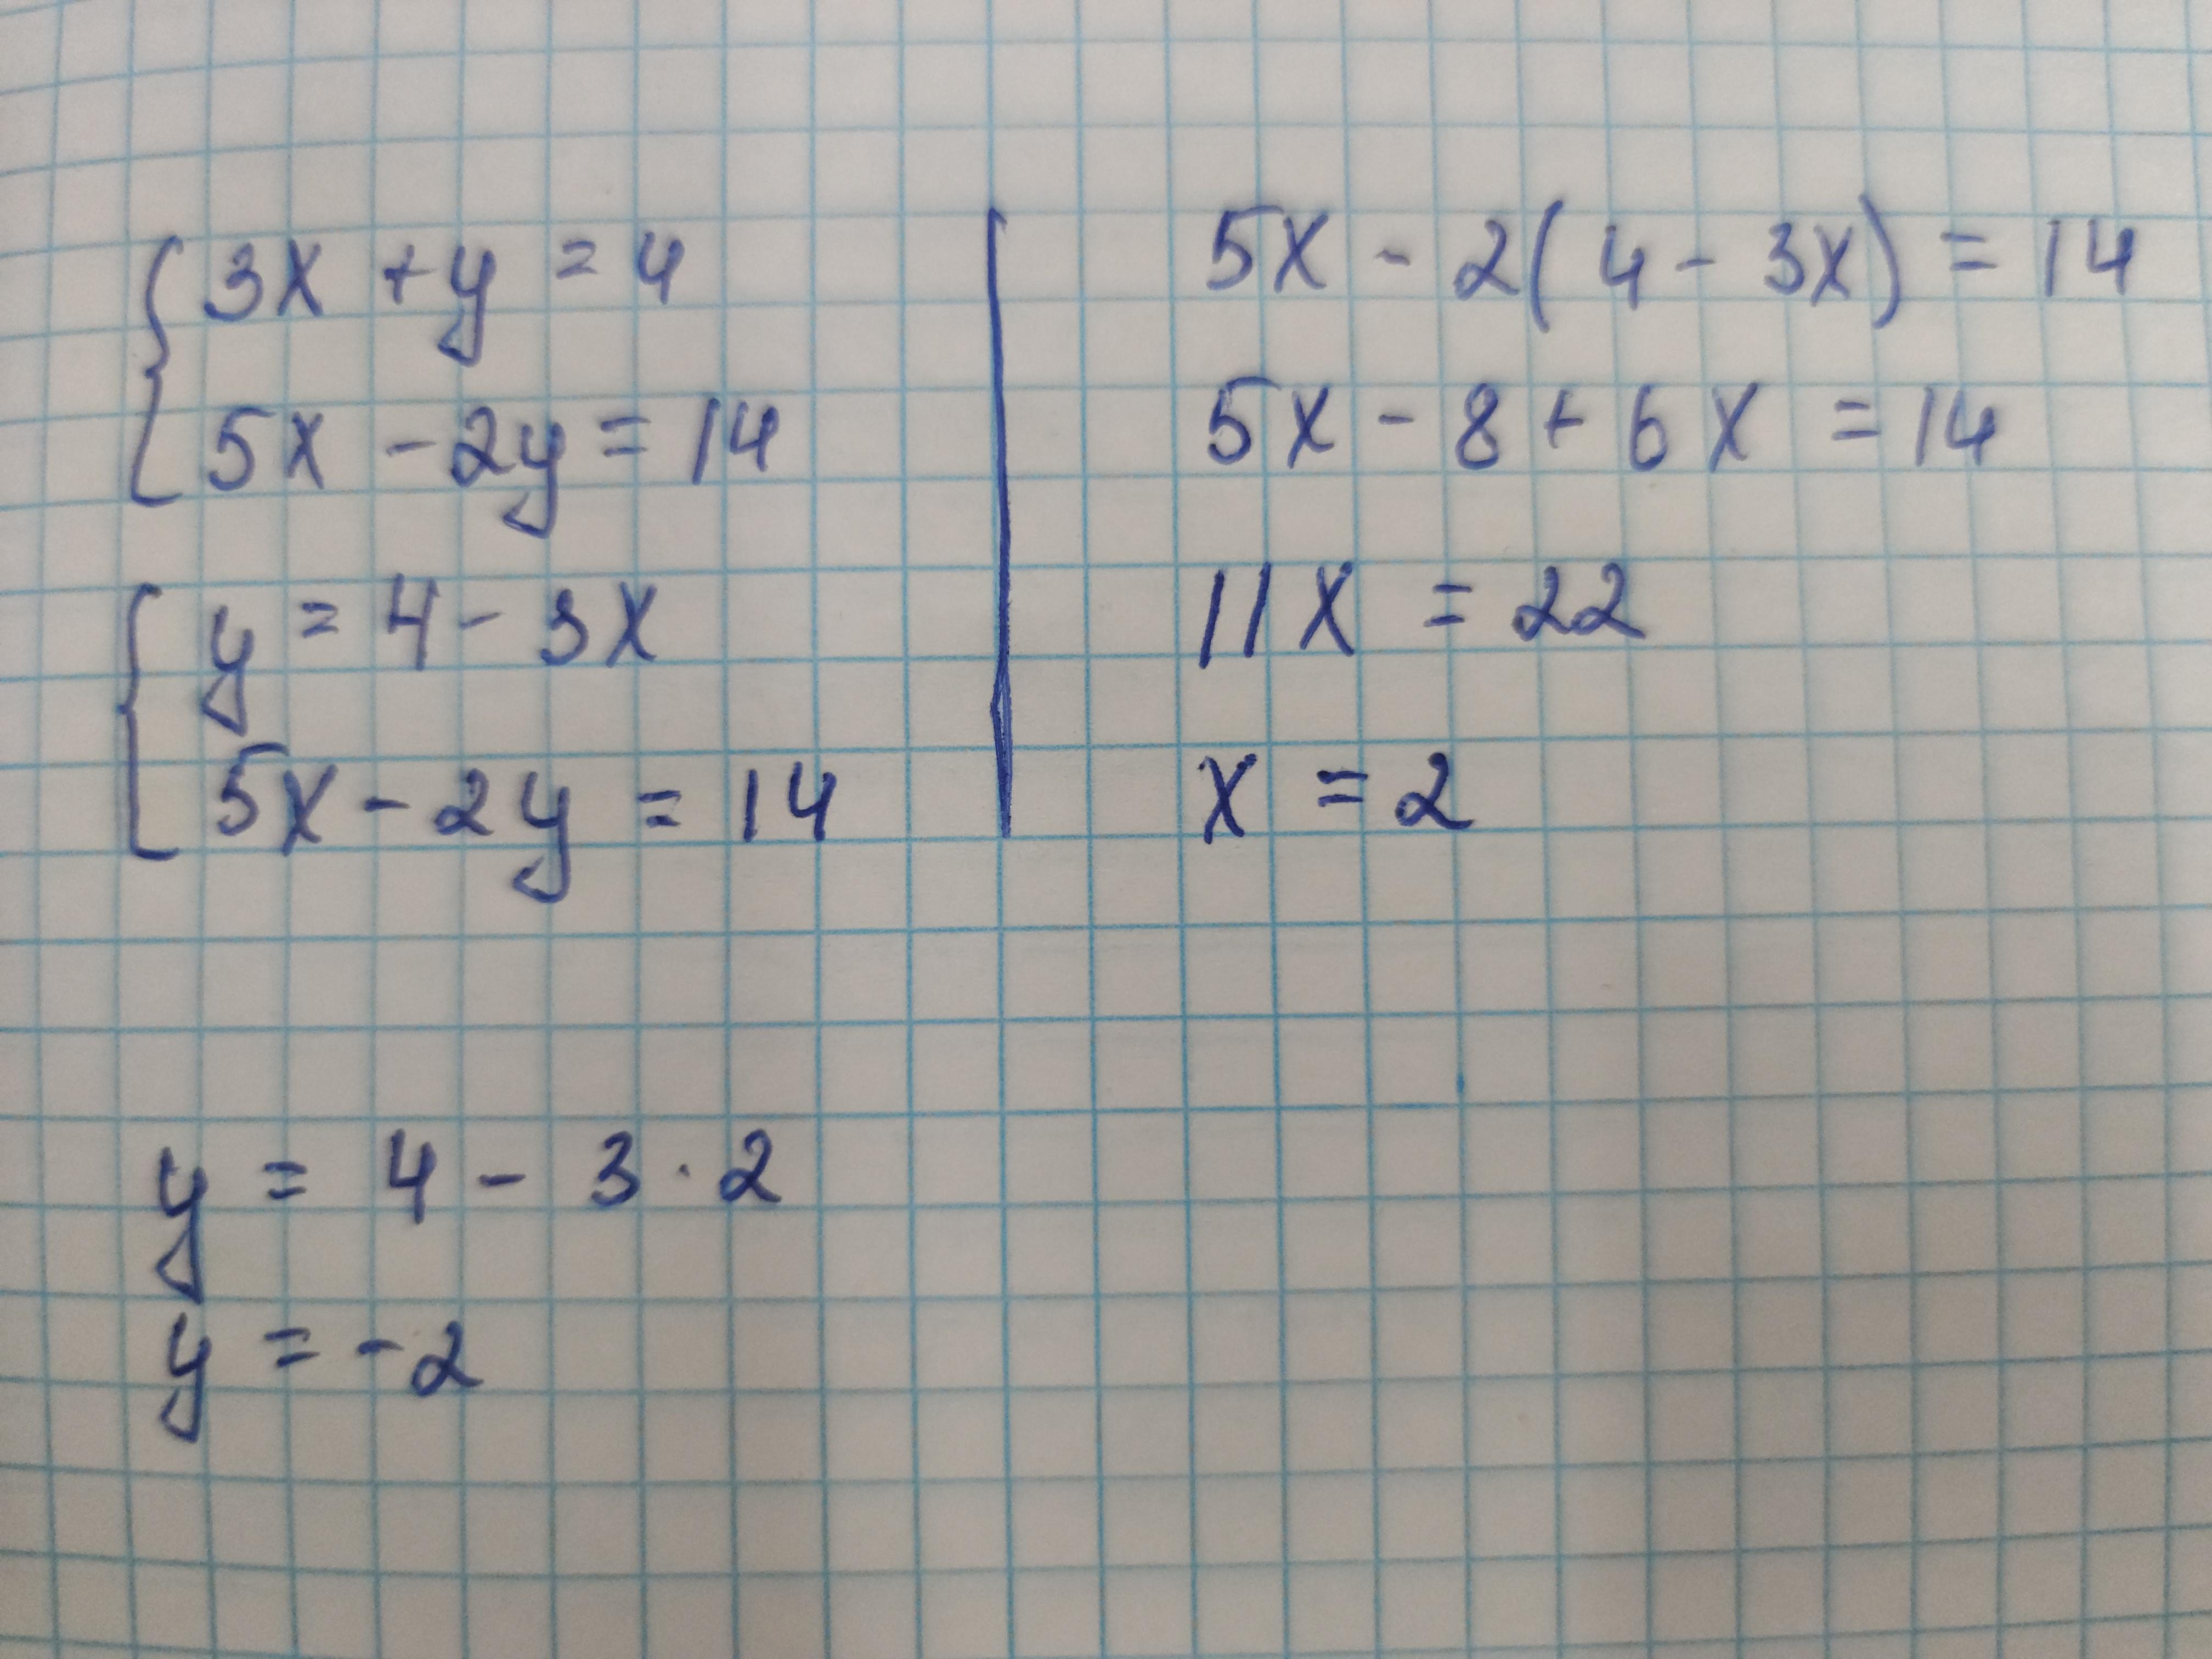 3x + y = 4
5x - 2y = 14
y = 4 - 3x
5x - 2y = 14
5x - 2(4 - 3x) = 14
5x - 8 + 6x = 14
11x = 22
x = 2
y = 4 - 3 · 2
y = -2